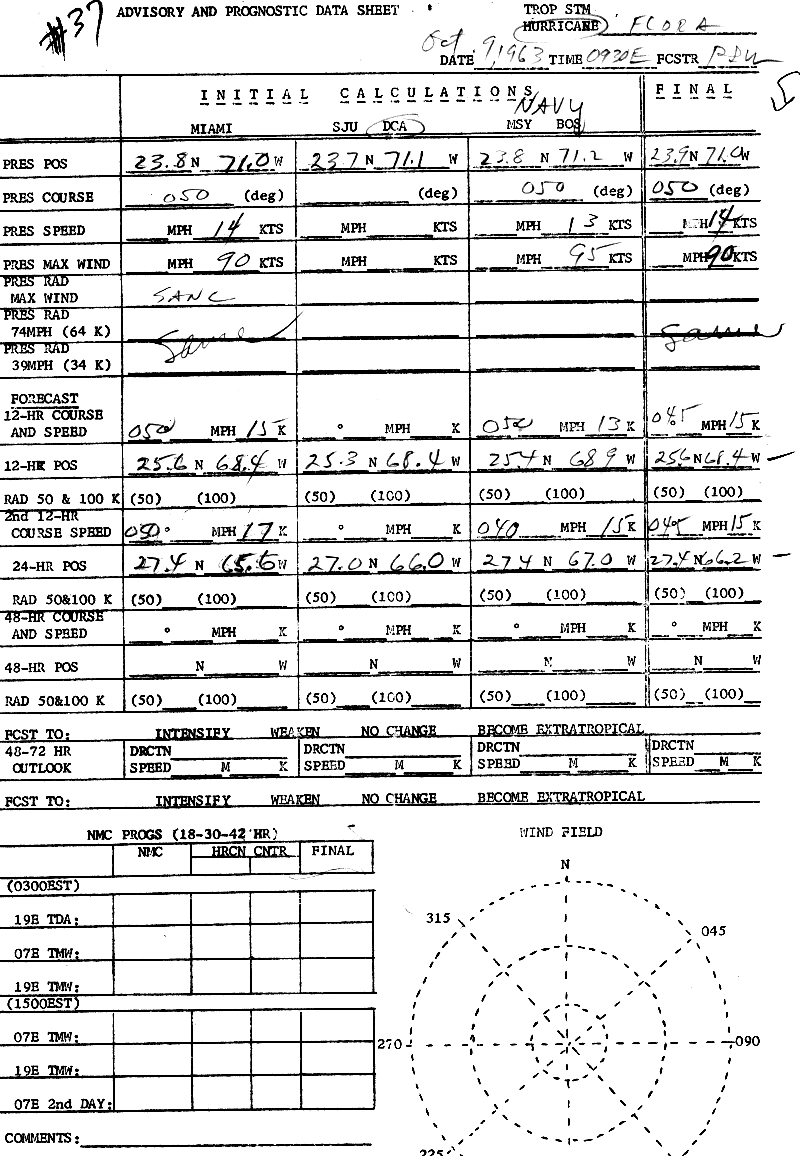 #37
ADVISORY AND PROGNOSTIC DATA SHEET TROP STM
HURRICANE FLORA
DATE Oct. 9, 1963 TIME 0930E FCSTR
INITIAL CALCULATIONS FINAL
NAVY
MIAMI SJU DCA MSY BOS
PRES POS 23.8 N 71.0 W 23.7 N 71.1 W 23.8 N 71.2 W 23.9 N 71.0 W
PRES COURSE 050 (deg) (deg) 050 (deg) 050 (deg)
PRES SPEED MPH 14 KTS MPH KTS MPH 13 KTS MPH 14 KTS
PRES MAX WIND MPH 90 KTS MPH KTS MPH 95 KTS MPH 90 KTS
PRES RAD
MAX WIND
PRES RAD
74MPH (64 K) Same Same
PRES RAD
39MPH (34 K)
FORECAST
12-HR COURSE
AND SPEED 050 MPH 15 K ° MPH K 050 MPH 13 K 045 MPH 15 K
12-HR POS 25.6 N 68.4 W 25.3 N 68.4 W 25.4 N 68.9 W 25.6 N 68.4 W
RAD 50 & 100 K (50) (100) (50) (100) (50) (100) (50) (100)
2nd 12-HR
COURSE SPEED 050° MPH 17 K ° MPH K 040 MPH 15 K 045 MPH 15 K
24-HR POS 27.4 N 65.6 W 27.0 N 66.0 W 27.4 N 67.0 W 27.4 N 66.2 W
RAD 50&100 K (50) (100) (50) (100) (50) (100) (50) (100)
48-HR COURSE
AND SPEED ° MPH K ° MPH K ° MPH K ° MPH K
48-HR POS N W N W N W N W
RAD 50&100 K (50) (100) (50) (100) (50) (100) (50) (100)
FCST TO: INTENSIFY WEAKEN NO CHANGE BECOME EXTRATROPICAL
48-72 HR DRCTN DRCTN DRCTN DRCTN
OUTLOOK SPEED M K SPEED M K SPEED M K SPEED M K
FCST TO: INTENSIFY WEAKEN NO CHANGE BECOME EXTRATROPICAL
NMC PROGS (18-30-42 HR) WIND FIELD
NMC HRCN CNTR FINAL
N
(0300EST)
19E TDA: 315 045
07E TMW:
19E TMW:
(1500EST)
07E TMW: 270 090
19E TMW:
07E 2nd DAY:
COMMENTS: 225